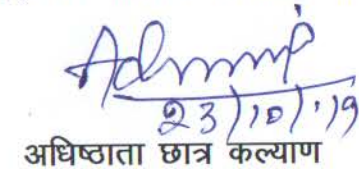 23/10/'19
अधिष्ठाता छात्र कल्याण